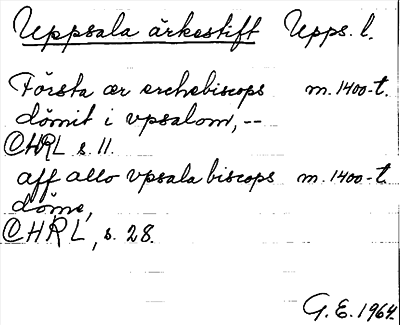 Uppsala ärkestift Upps. l.
Första ær erchebiscops m. 1400-t.
dömit i vpsalom, --
CHRL s. 11.
aff allo vpsala biscops m. 1400-t.
döme,
CHRL, s. 28.
G. E. 1964.